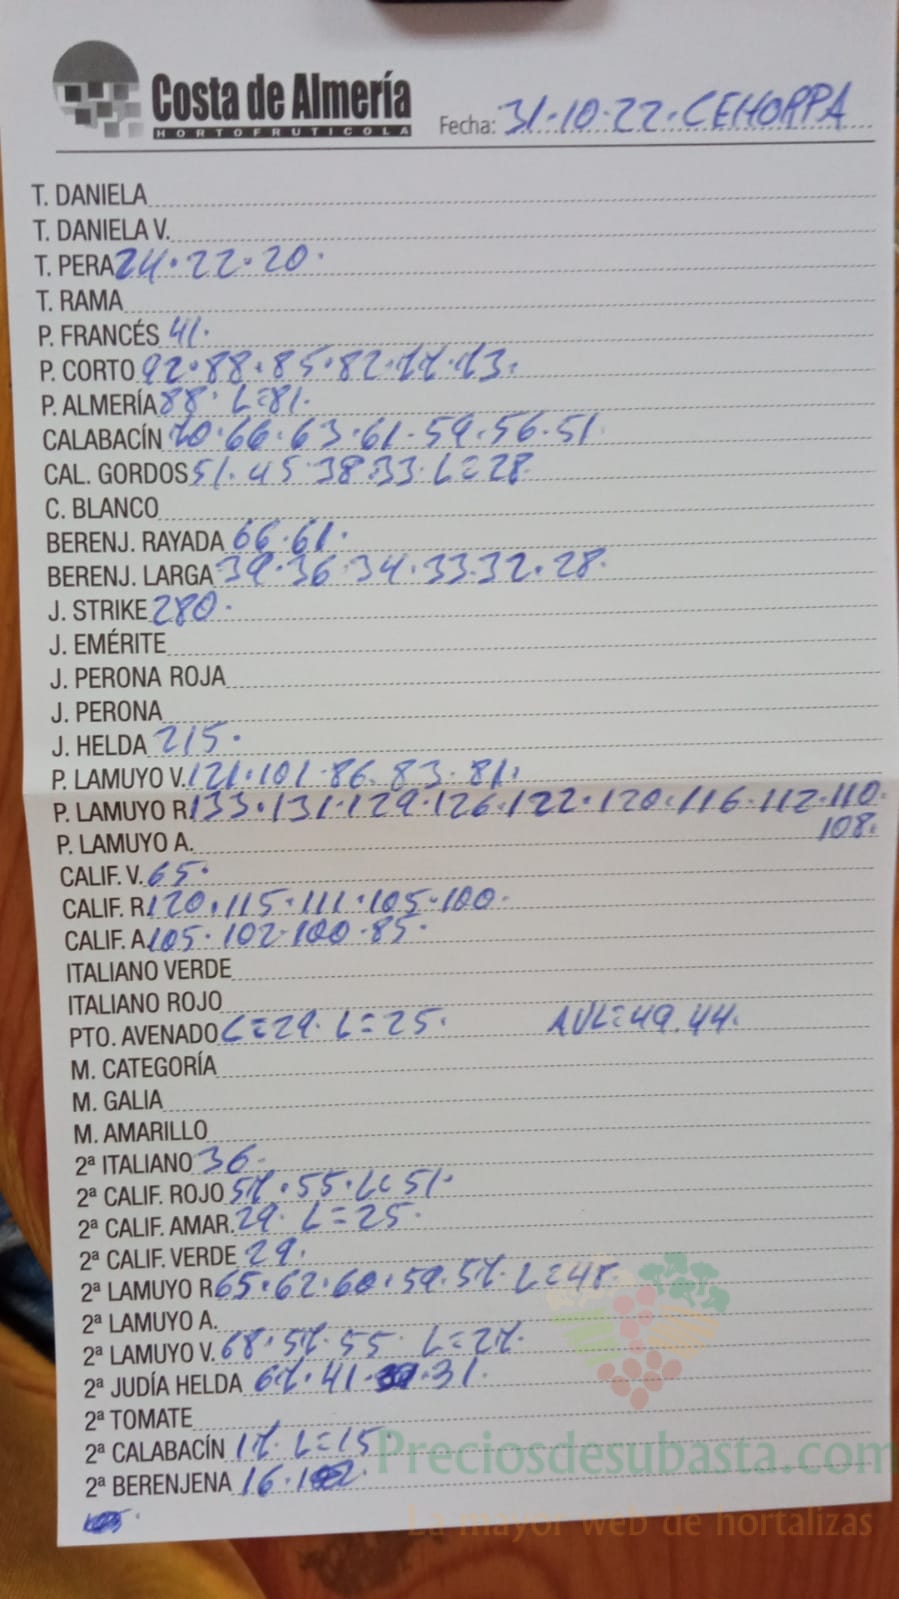 Costa de Almería
HORTOFRUTICOLA
Fecha: 31·10·22·CEHORPA
T. DANIELA
T. DANIELA V.
T. PERA 24·22·20·
T. RAMA
P. FRANCÉS 41·
P. CORTO 92·88·85·82·77·73·
P. ALMERÍA 88· L=81·
CALABACÍN 70·66·63·61·59·56·51
CAL. GORDOS 51·45·38·33· L=28
C. BLANCO
BERENJ. RAYADA 66·61·
BERENJ. LARGA 39·36·34·33·32·28·
J. STRIKE 280·
J. EMÉRITE
J. PERONA ROJA
J. PERONA
J. HELDA 215·
P. LAMUYO V. 121·101·86·83·81·
P. LAMUYO R 133·131·129·126·122·120·116·112·110·
108·
P. LAMUYO A.
CALIF. V. 65·
CALIF. R 120·115·111·105·100·
CALIF. A 105·102·100·85·
ITALIANO VERDE
ITALIANO ROJO
PTO. AVENADO L=29· L=25· AVL=49.44·
M. CATEGORÍA
M. GALIA
M. AMARILLO
2ª ITALIANO 36·
2ª CALIF. ROJO 57·55· L=51·
2ª CALIF. AMAR. 29· L=25·
2ª CALIF. VERDE 29·
2ª LAMUYO R 65·62·60·59·57· L=45
2ª LAMUYO A.
2ª LAMUYO V. 68·57·55 L=27·
2ª JUDÍA HELDA 67·41· ·31·
2ª TOMATE
2ª CALABACÍN 17· L=15
2ª BERENJENA 16·
Preciosdesubasta.com
La mayor web de hortalizas